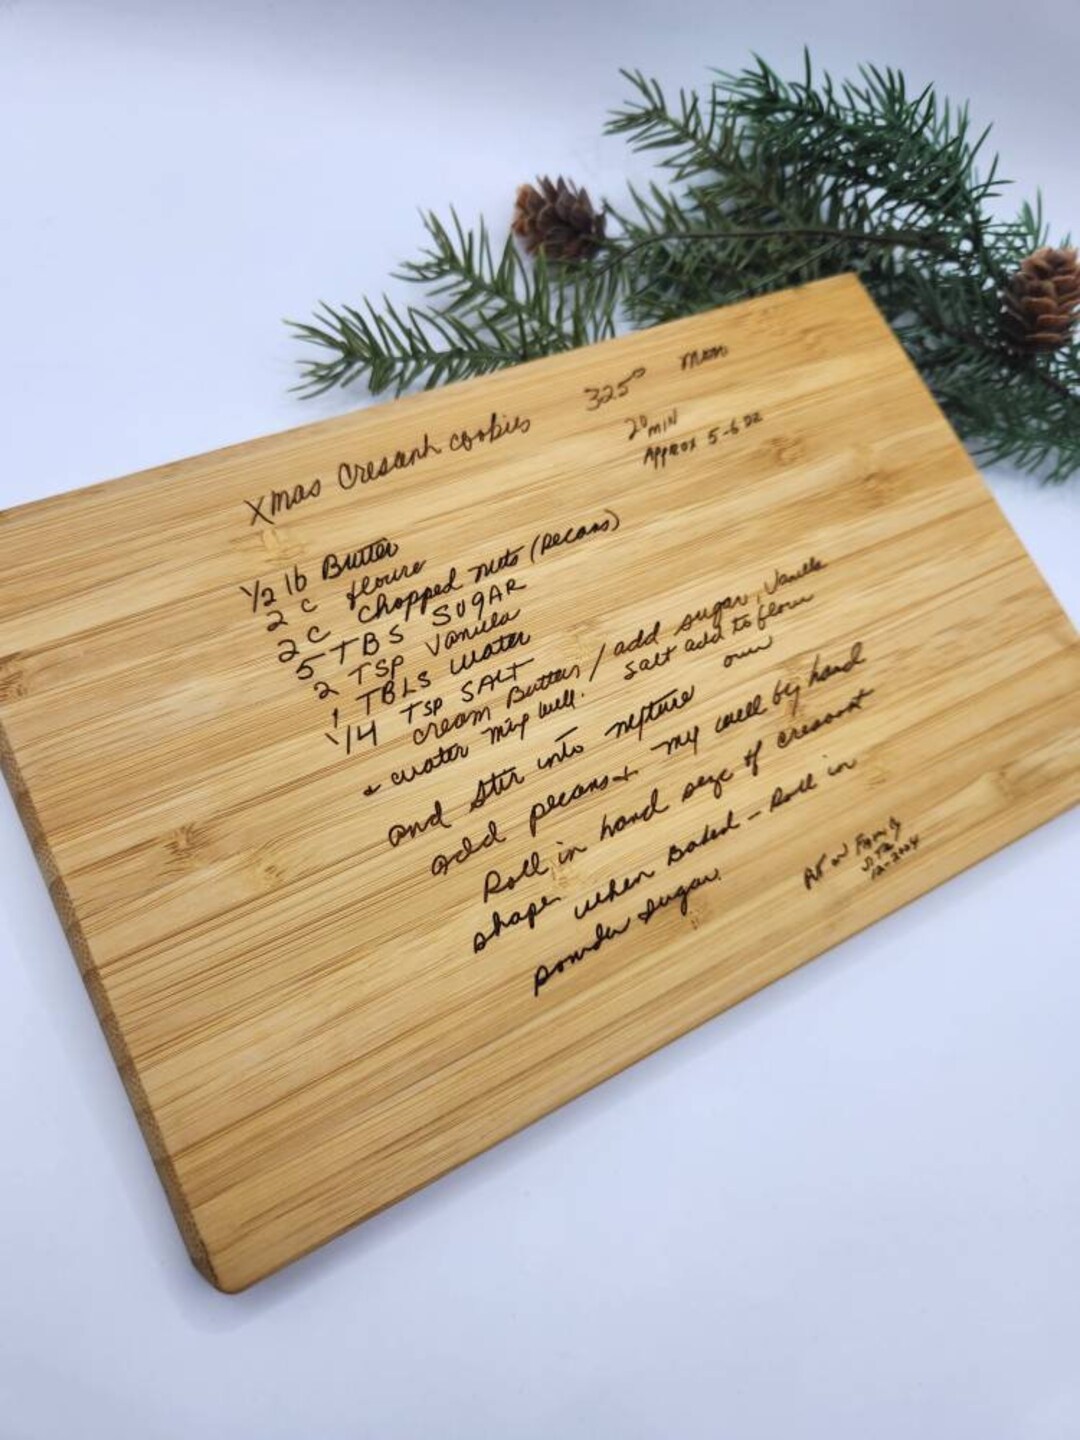 Xmas Cresanh cookies 325° mom
20 MIN
Approx 5-6 DZ
1/2 lb Butter
2 c floure
2 C chopped nuts (pecans)
5 TBS SUGAR
2 TSP Vanilla
1 TBLS water
1/4 TSP SALT
cream Butter / add sugar, Vanilla
& water mix well. salt add to flour
and stir into mixture own
add pecans & mix well by hand
Roll in hand seze of cresant
shape when Baked - Roll in
powder sugar.
12-2004